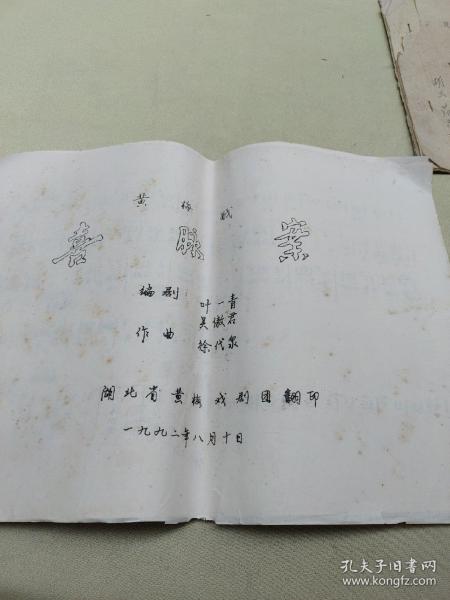 黄梅戏
喜脉案
编剧 叶一青
吴傲君
作曲 徐代泉
湖北省黄梅戏剧团翻印
一九九二年八月十日
孔夫子旧书网
www.kongfz.com